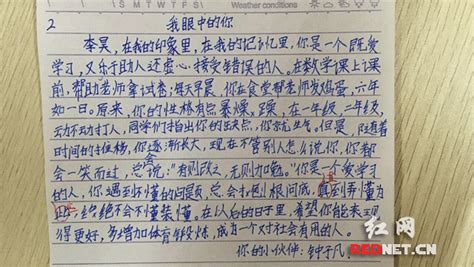 S M T W T F S
Weather conditions
2
我眼中的你
李昊,在我的印象里,在我的记忆里,你是一个既爱
学习,又乐于助人还虚心接受错误的人。在数学课上课
前,帮助老师拿试卷;每天早晨,你在食堂帮老师发鸡蛋,六年
如一日。原来,你的性格有点暴燥,躁,在一年级,二年级,
动不动打人,同学们指出你的缺点,你就生气。但是,随着
时间的推移,你逐渐长大,现在不管别人怎么说你,你都
会一笑而过,总说:“有则改之,无则加勉。”你是一个爱学习
的人,你遇到不懂的问题,总会打倒根问底,直到弄懂为
止,绝不会不懂装懂。在以后的日子里,希望你能表现
得更好,多增加体育锻炼,成为一个对社会有用的人。
你的小伙伴:钟子凡
红网
REDNET.CN